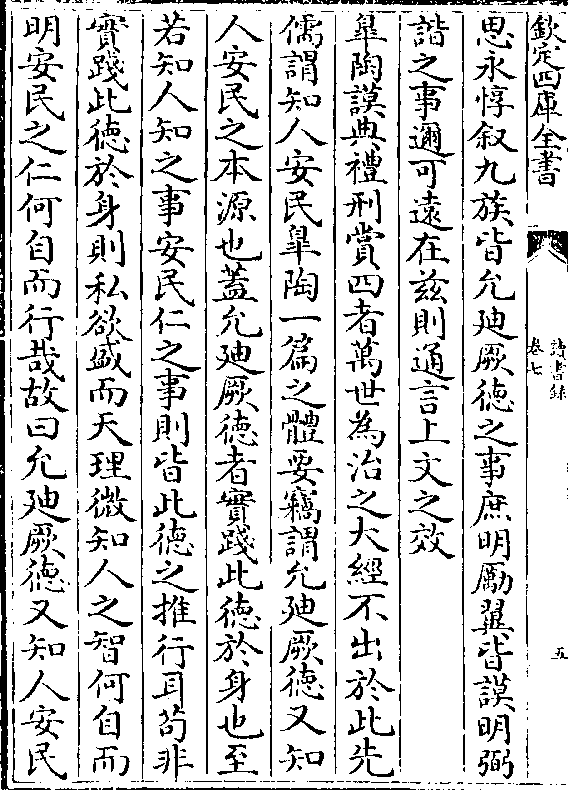 欽定四庫全書
讀書録
卷七
五
思永惇叙九族皆允廸厥徳之事庶明勵翼皆謨明弼
諧之事邇可逺在兹則通言上文之效
臯陶謨典禮刑賞四者萬世為治之大經不出於此先
儒謂知人安民臯陶一篇之體要竊謂允廸厥徳又知
人安民之本源也蓋允廸厥徳者實踐此徳於身也至
若知人知之事安民仁之事則皆此徳之推行耳茍非
實踐此徳於身則私欲盛而天理微知人之智何自而
明安民之仁何自而行哉故曰允廸厥徳又知人安民